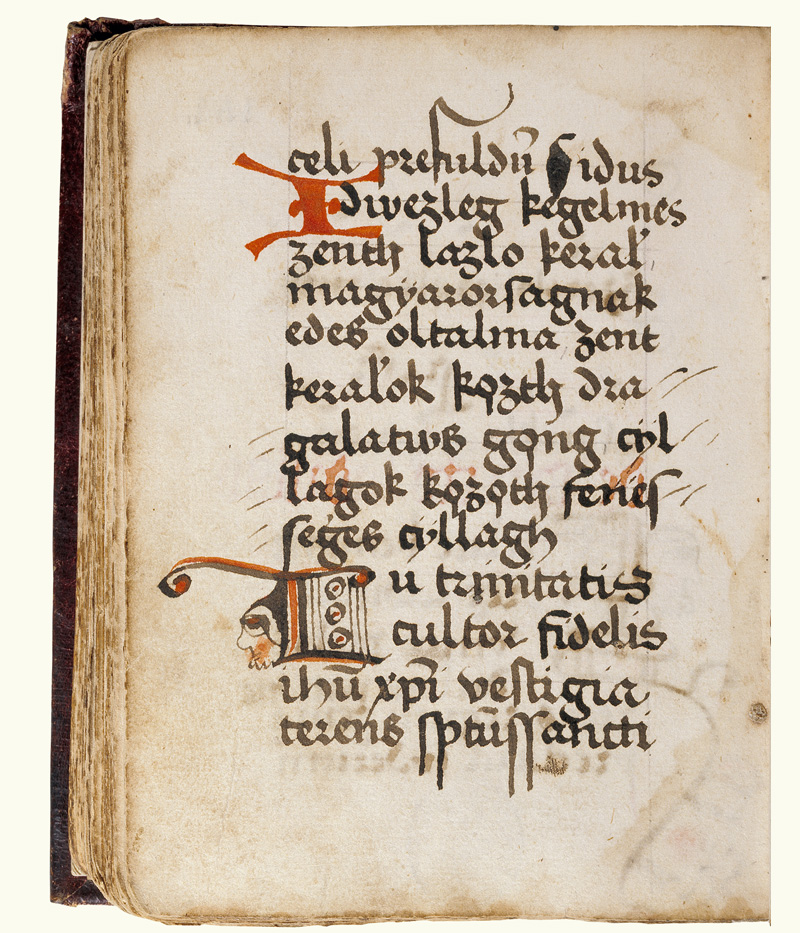 celi prefuldū sidus
Idwezleg kegelmes
zenth lazlo keral'
magyarorsagnak
edes oltalma zent
keral'ok kǫzth dra
galatws gǫng cyl
lagok kǫzǫth fenes
seges cyllagh
Tu trinitatis
cultor fidelis
ihū xp̄i vestigia
terens sptūssancti